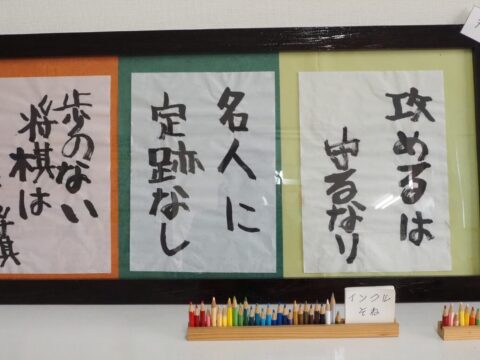 攻めるは
守るなり
名人に
定跡なし
歩のない
将棋は
将棋
インクル